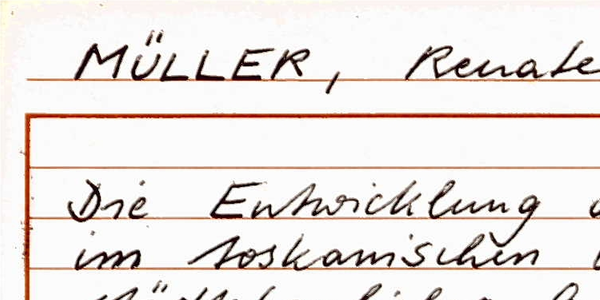 MÜLLER, Renate
Die Entwicklung
im toskanischen